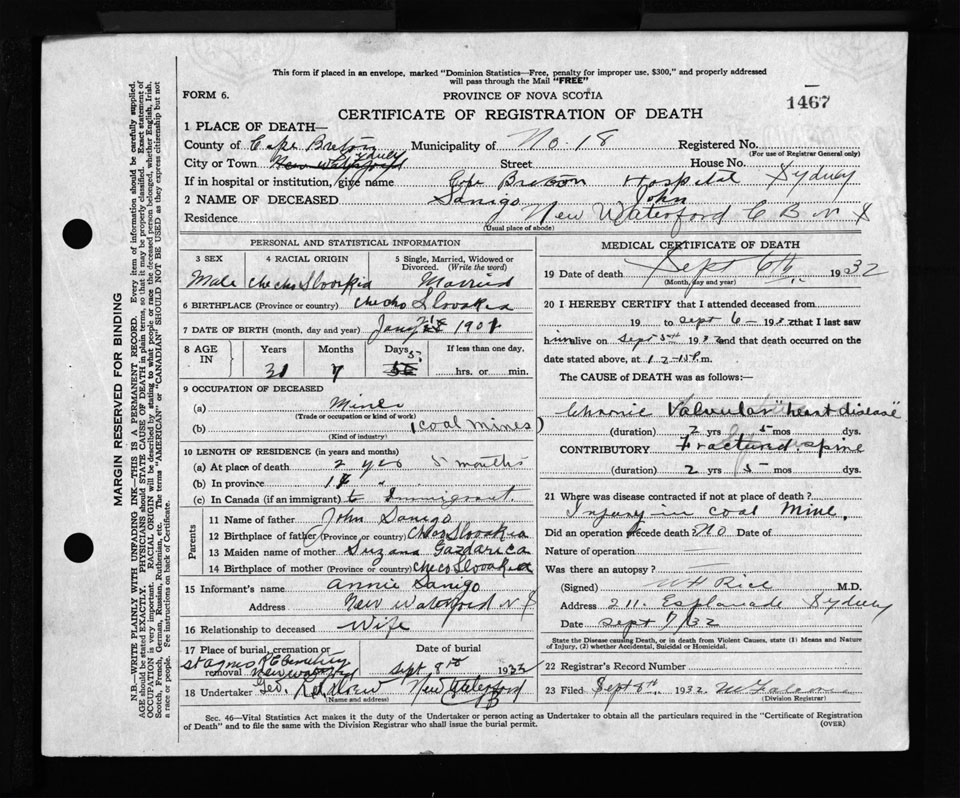 This form if placed in an envelope, marked "Dominion Statistics—Free, penalty for improper use, $300," and properly addressed
will pass through the Mail "FREE"
FORM 6.
PROVINCE OF NOVA SCOTIA
1467
CERTIFICATE OF REGISTRATION OF DEATH
1 PLACE OF DEATH—
County of Cape Breton Municipality of No. 18 Registered No.
(For use of Registrar General only)
City or Town New Waterford Sydney Street House No.
If in hospital or institution, give name Cape Breton Hospital Sydney
2 NAME OF DECEASED Sanigo John
Residence New Waterford C B N S
(Usual place of abode)
PERSONAL AND STATISTICAL INFORMATION
3 SEX 4 RACIAL ORIGIN 5 Single, Married, Widowed or Divorced. (Write the word)
Male checho Slovakia Married
6 BIRTHPLACE (Province or country) checho Slovakia
7 DATE OF BIRTH (month, day and year) Jany 1901
8 AGE IN Years Months Days If less than one day,
31 7 hrs. or min.
9 OCCUPATION OF DECEASED
(a) Miner
(Trade or occupation or kind of work)
(b) (coal mines)
(Kind of industry)
10 LENGTH OF RESIDENCE (in years and months)
(a) At place of death 2 yrs 5 months
(b) In province
(c) In Canada (if an immigrant) Immigrant
Parents
11 Name of father John Sanigo
12 Birthplace of father (Province or country) checoSlovakia
13 Maiden name of mother Suzana Gazdarica
14 Birthplace of mother (Province or country) checoSlovakia
15 Informant's name Annie Sanigo
Address New Waterford N S
16 Relationship to deceased Wife
17 Place of burial, cremation or removal Date of burial
St agnes R C Cemetery New Waterford Sept 8th 1932
18 Undertaker Geo. New Waterford CB
(Name and address)
MEDICAL CERTIFICATE OF DEATH
19 Date of death Sept 6th 1932
(Month, day and year)
20 I HEREBY CERTIFY that I attended deceased from
19 to Sept 6 - 1932 that I last saw
him alive on Sept 5th 1932 and that death occurred on the
date stated above, at 12 m.
The CAUSE OF DEATH was as follows:—
Chronic Valvular "heart disease"
(duration) 2 yrs 5 mos days
CONTRIBUTORY Fractured spine
(duration) 2 yrs 5 mos days
21 Where was disease contracted if not at place of death?
Injury in coal Mine.
Did an operation precede death? No Date of
Nature of operation
Was there an autopsy?
(Signed) W H Rice M.D.
Address 211. Esplanade Sydney
Date Sept 7/32
State the Disease causing Death, or in death from Violent Causes, state (1) Means and Nature
of Injury, (2) whether Accidental, Suicidal or Homicidal.
22 Registrar's Record Number
23 Filed Sept 8th, 1932
(Division Registrar)
Sec. 46—Vital Statistics Act makes it the duty of the Undertaker or person acting as Undertaker to obtain all the particulars required in the "Certificate of Registration
of Death" and to file the same with the Division Registrar who shall issue the burial permit.
(OVER)
MARGIN RESERVED FOR BINDING
N.B.—WRITE PLAINLY WITH UNFADING INK—THIS IS A PERMANENT RECORD. Every item of information should be carefully supplied.
AGE should be stated EXACTLY. PHYSICIANS should STATE CAUSE OF DEATH in plain terms, so that it may be properly classified. Exact statement of
OCCUPATION is very important. RACIAL ORIGIN will be described by stating to what people or race the deceased person belonged, whether English, Irish,
Scotch, French, German, Russian, Ruthenian, etc. The terms "AMERICAN" or "CANADIAN" SHOULD NOT BE USED as they express citizenship but not
a race or people. See instructions on back of Certificate.